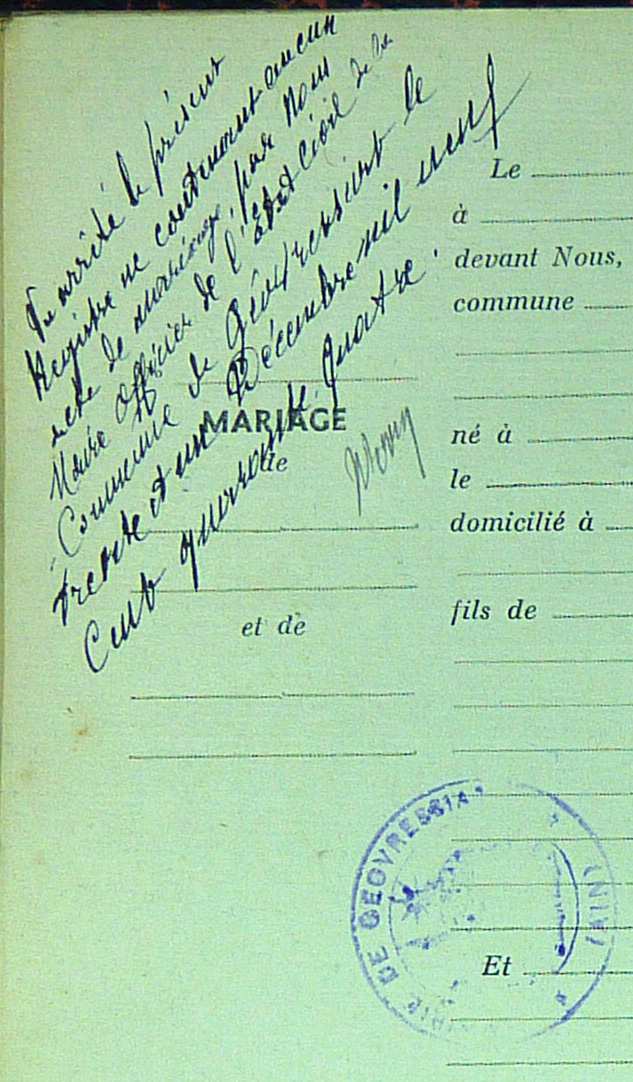 Vu arrêté le présent
Registre ne contenant aucun
acte de mariage, par Nous
Maire Officier de l'Etat Civil de la
Commune de Géovressiat le
trente et un Décembre mil neuf
Cent quarante quatre.
MARIAGE
de
et de
Le
à
devant Nous,
commune
né à
le
domicilié à
fils de
Et
MAIRIE DE GEOVRESSIAT
(AIN)